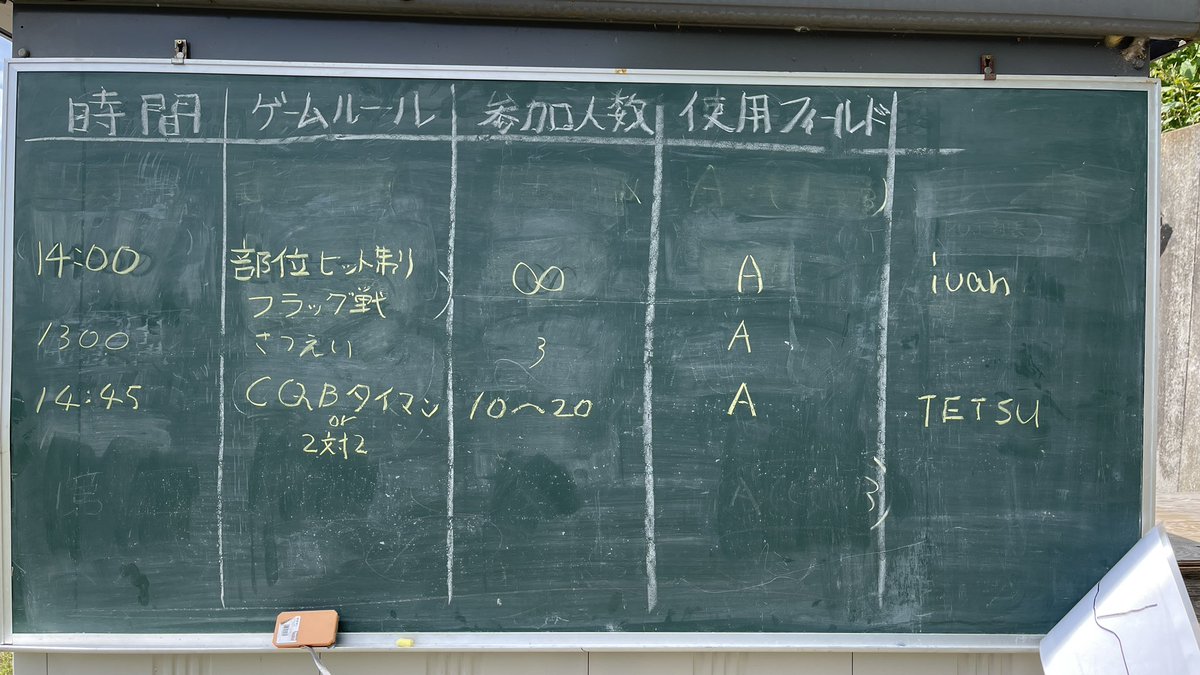 時間 ゲームルール 参加人数 使用フィールド
14:00 部位ヒット制 ∞ A ivan
フラッグ戦
1300 さつえい 3 A
14:45 CQBタイマン 10～20 A TETSU
or
2対2